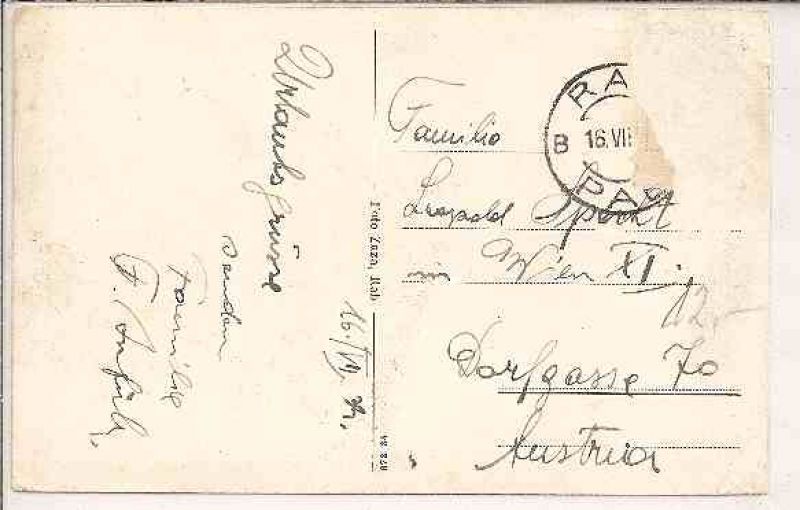 Urlaubs Grüsse
senden
Familie
F.
16./VII.
Foto Zaza, Rab.
872 24
RA
B 16.VII
RA
Familie
Leopold
in Wien XI.
12-
Dorfgasse 70
Austria